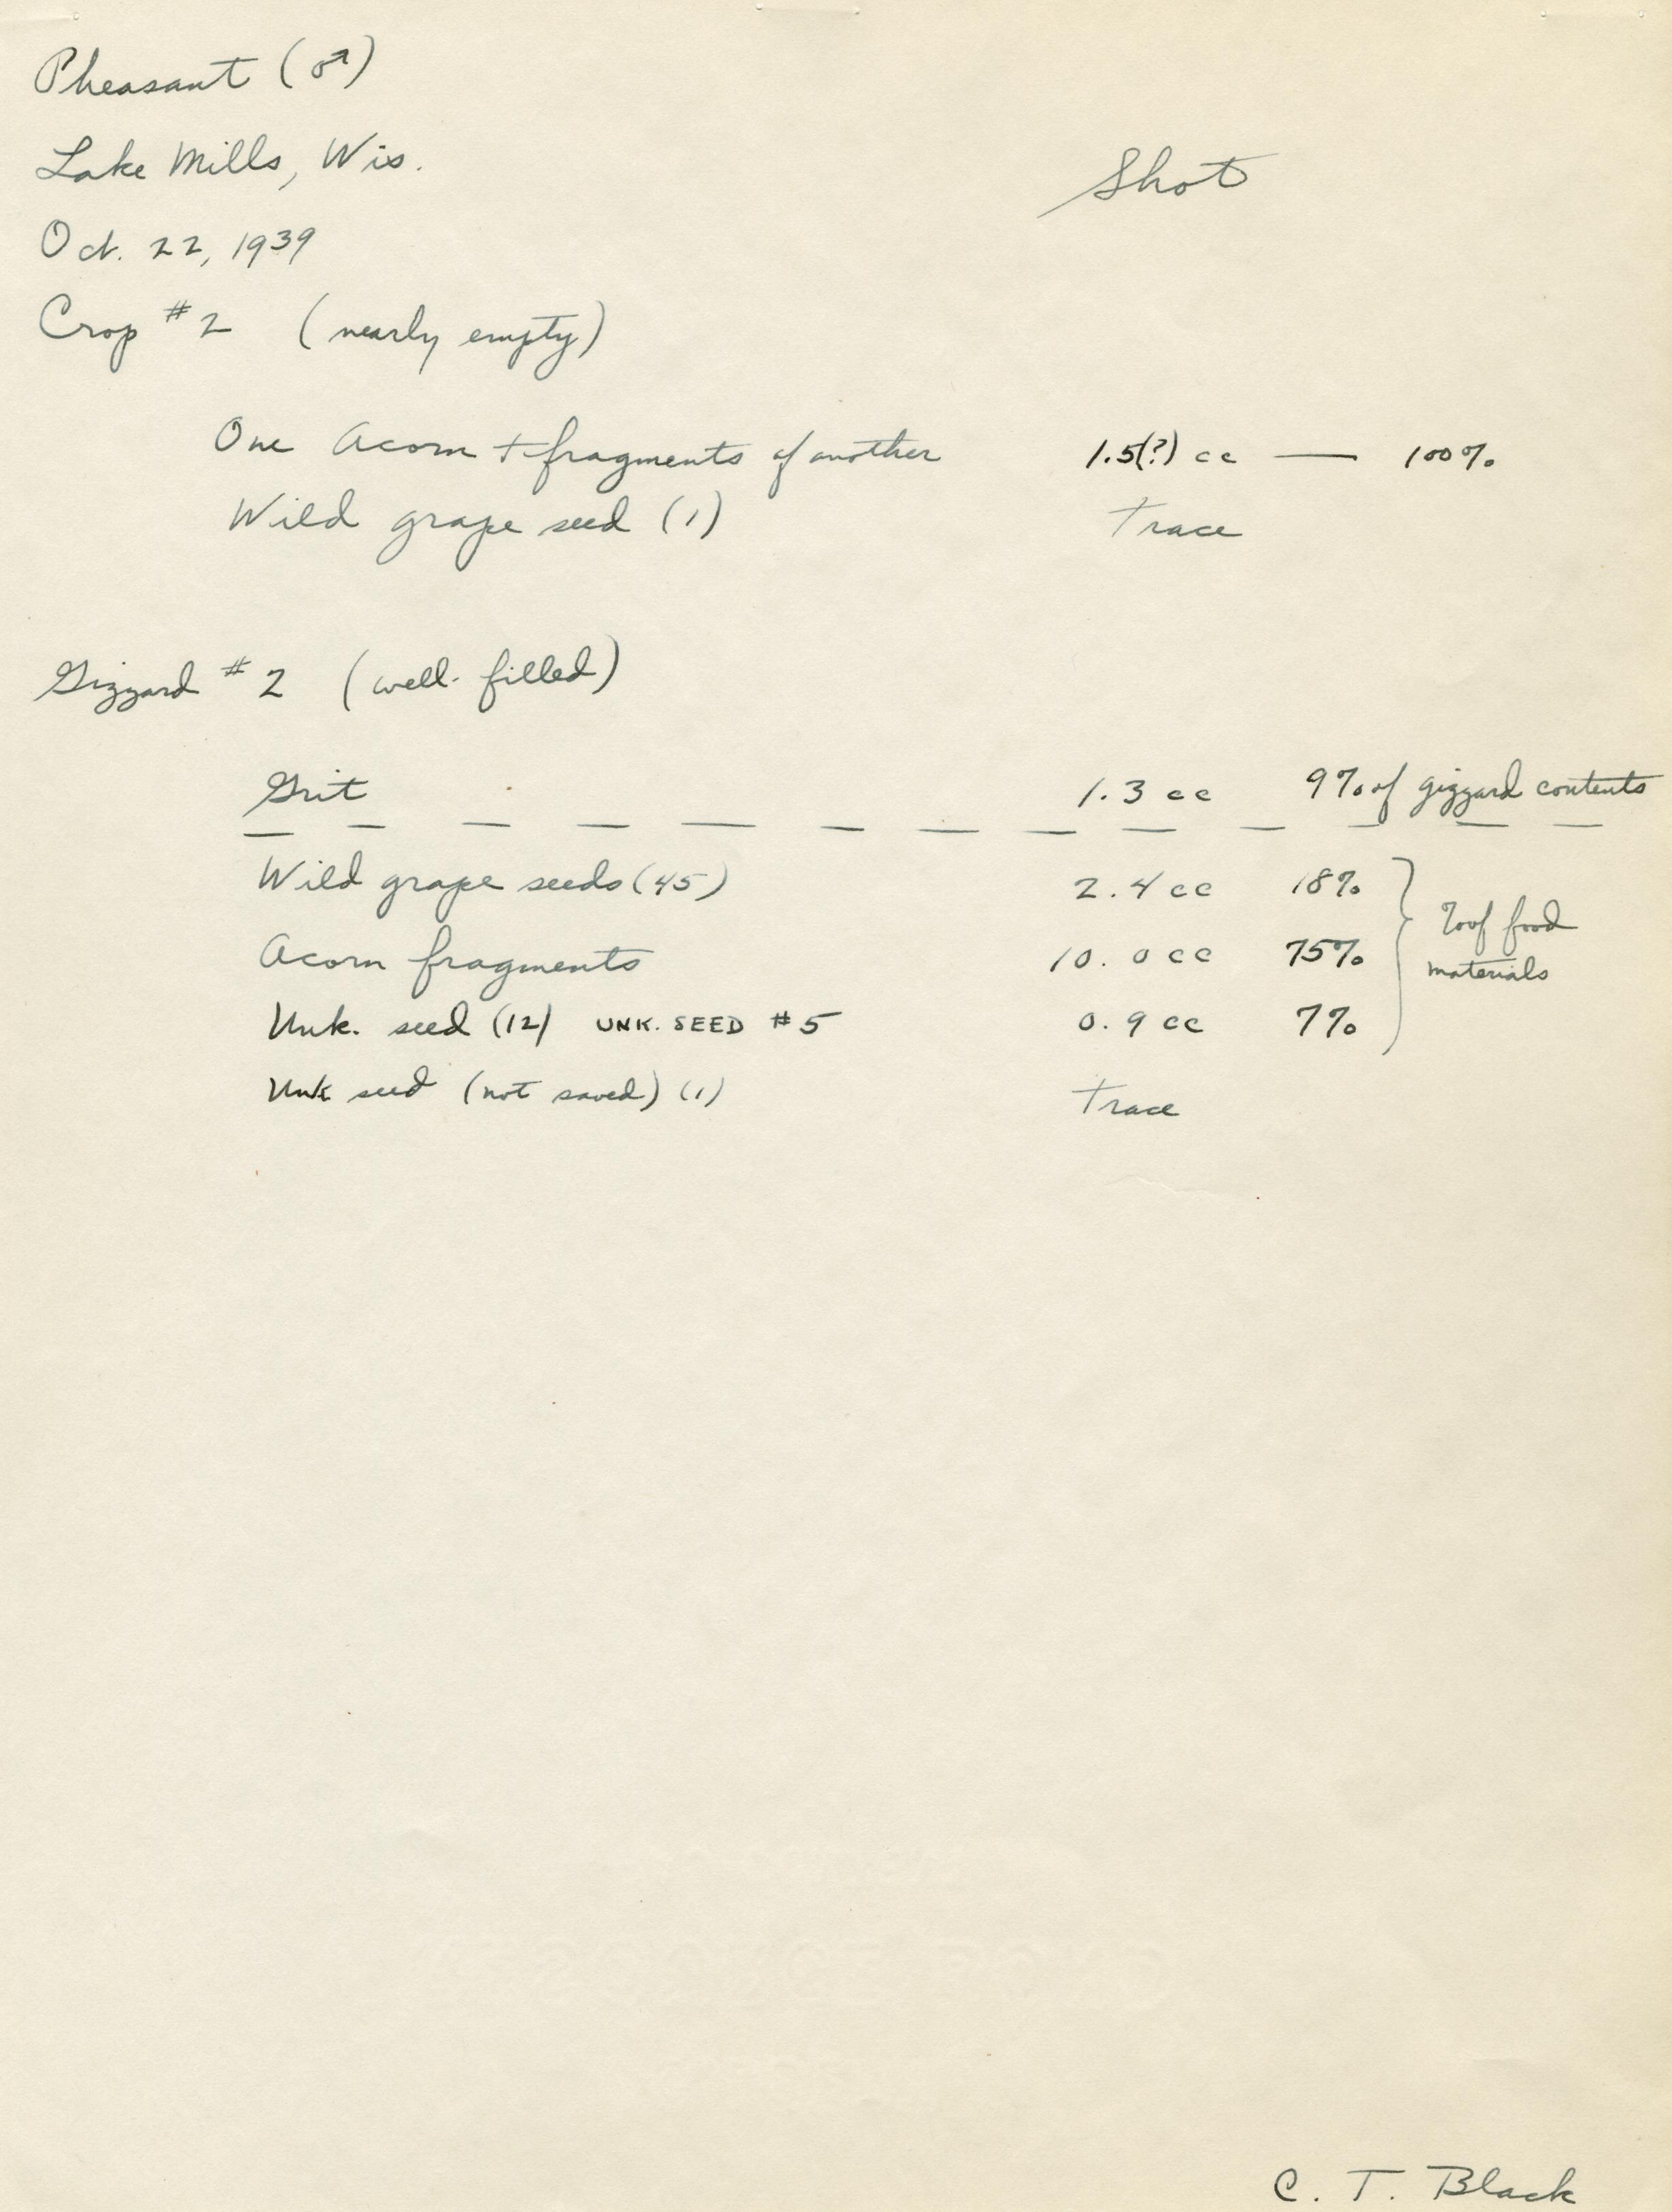 Pheasant (♂)
Lake Mills, Wis.
Shot
Oct. 22, 1939
Crop #2 (nearly empty)
One Acorn + fragments of another 1.5(?) cc — 100%
Wild grape seed (1) Trace
Gizzard #2 (well-filled)
Grit 1.3 cc 9% of gizzard contents
Wild grape seeds (45) 2.4 cc 18%
Acorn fragments 10.0 cc 75%
% of food
materials
Unk. seed (12) UNK. SEED #5 0.9 cc 7%
Unk seed (not saved) (1) Trace
C. T. Black